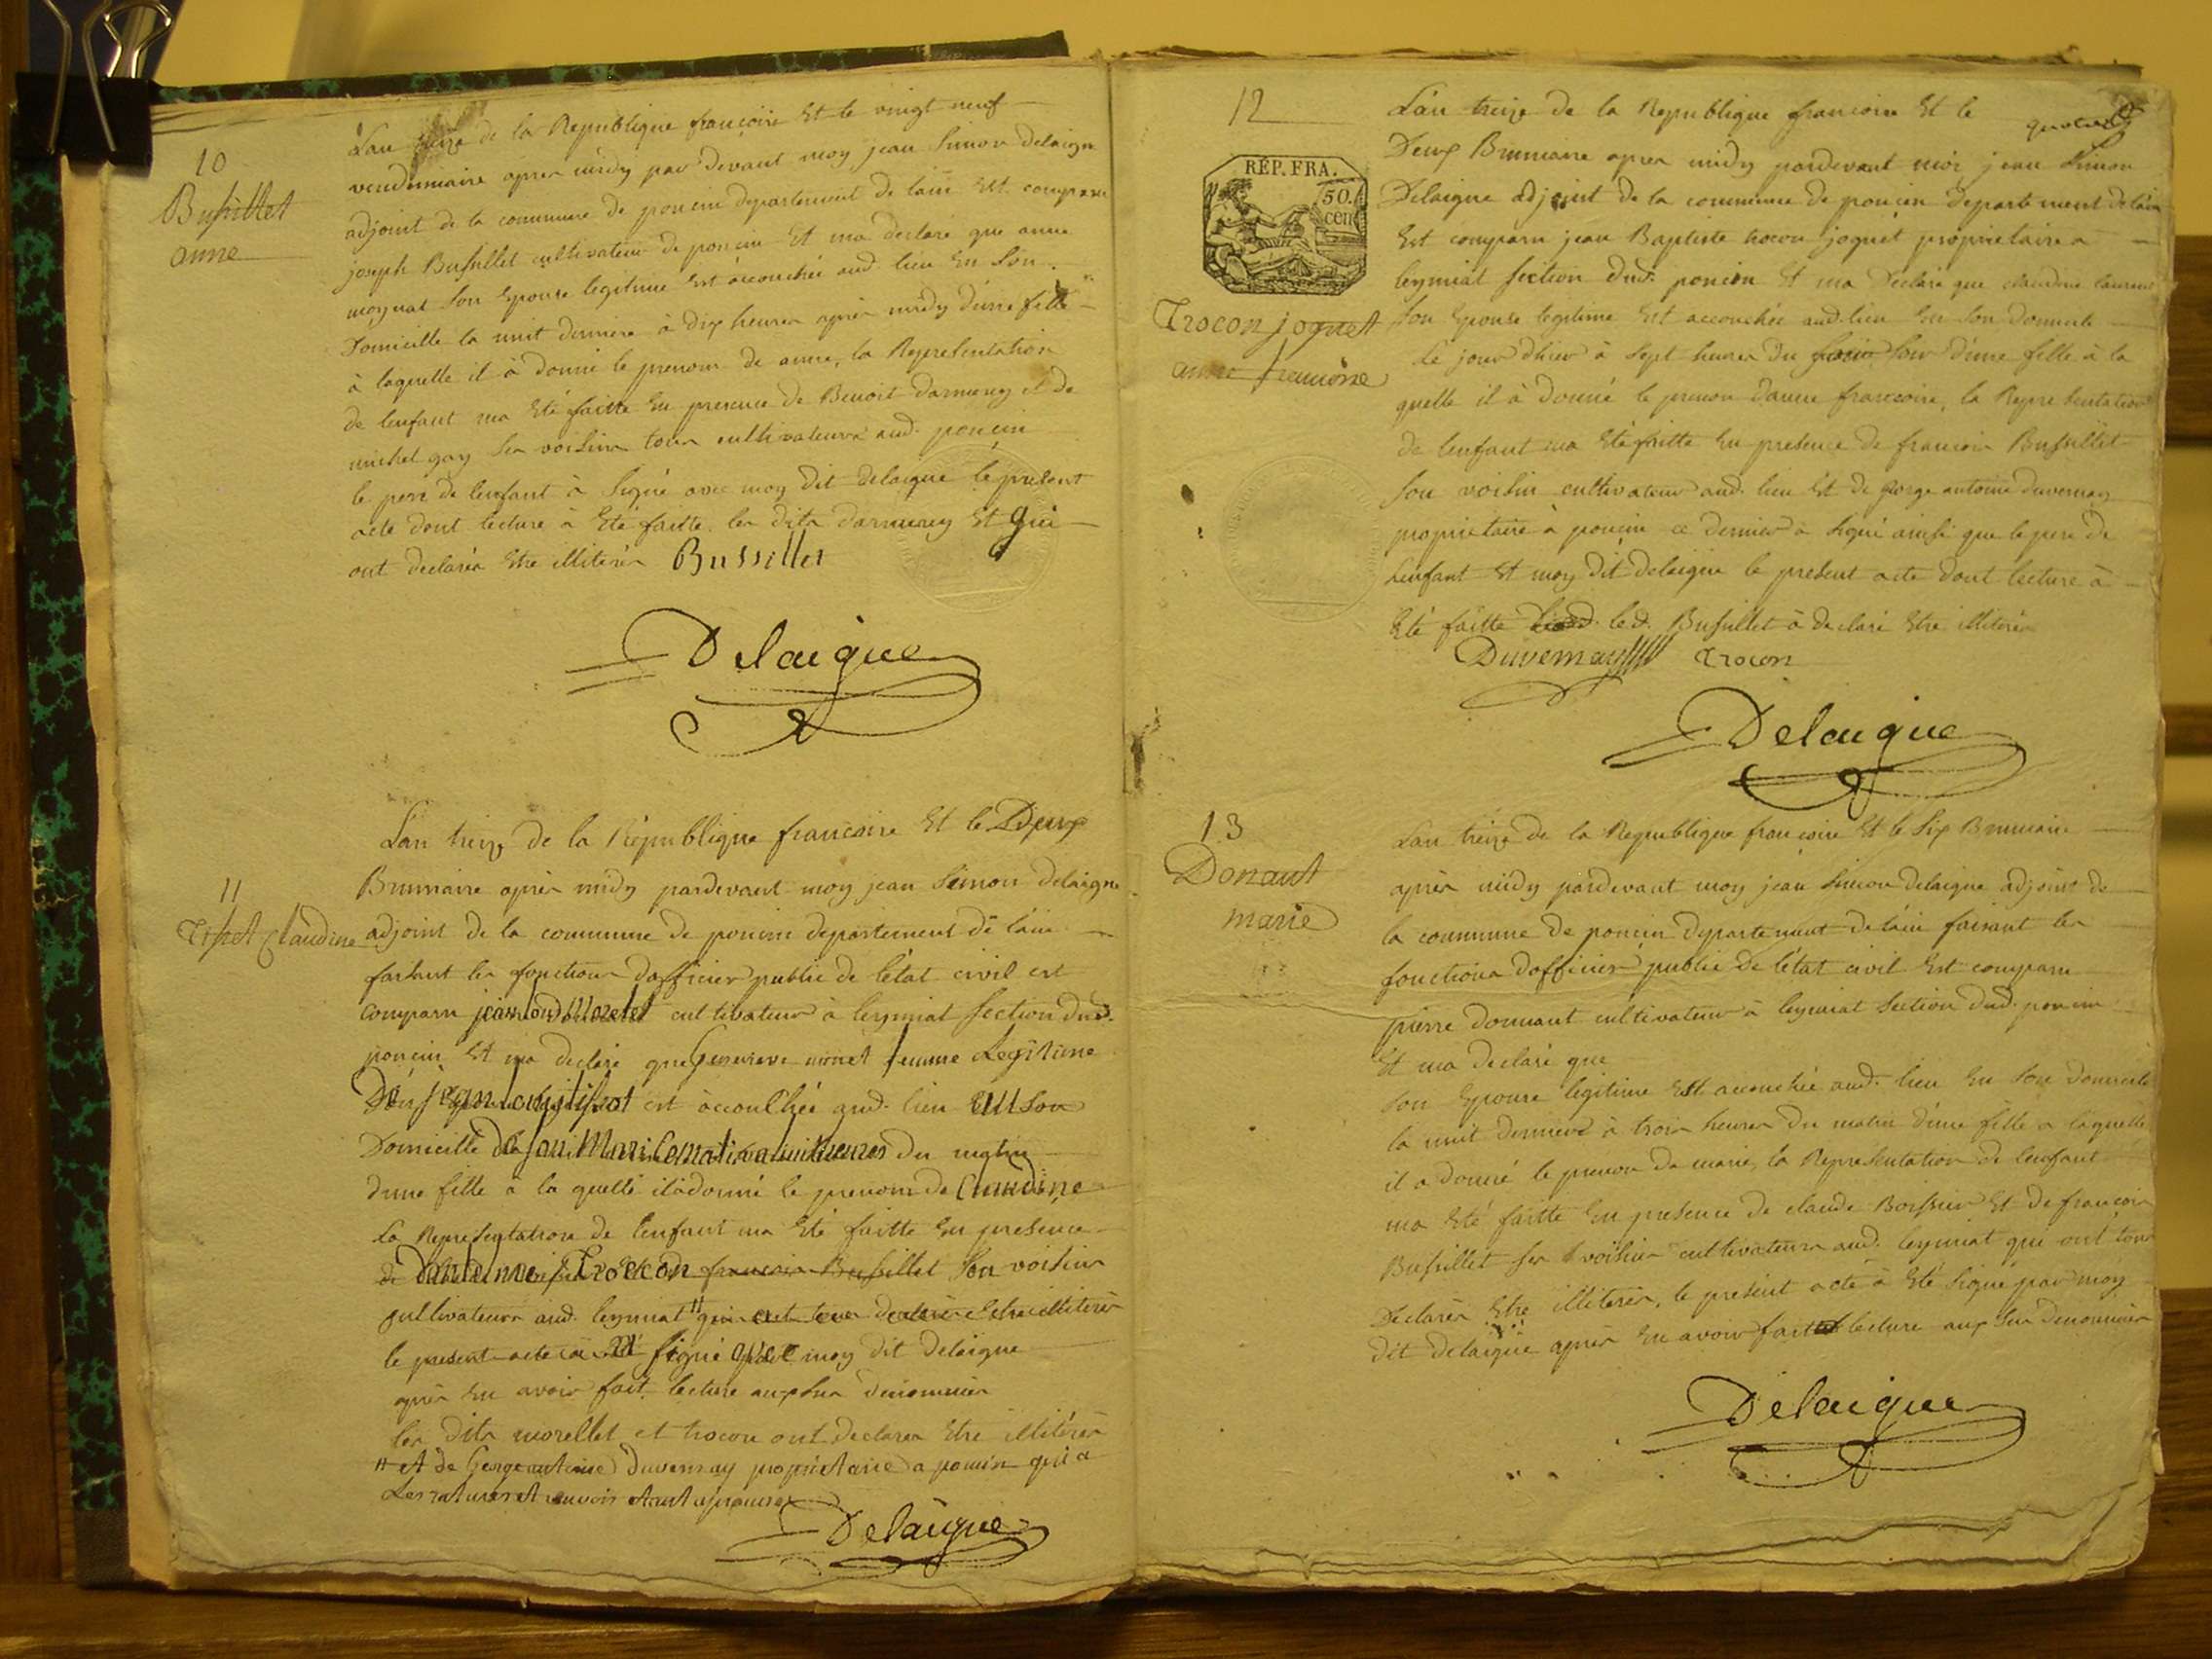 10
Bussillet
anne
L'an treize de la Republique françoise Et le vingt neuf
vendemiaire après midy par devant moy jean Simon delaigue
adjoint de la commune de poncin departement de l'ain Est comparu
joseph Bussillet cultivateur de poncin Et m'a declaré que anne
moynat son Epouse legitime Est accouchée aud. lieu En son
Domicille la nuit derniere à dix heures après midy d'une fille
à laquelle il à donné le prenom de anne, la Representation
de l'enfant m'a Eté faitte En presence de Benoit darmeney et de
michel gay ses voisins tous cultivateurs aud. poncin
le pere de l'enfant à signé avec moy dit delaigue le present
acte dont lecture à Eté faitte. les dits darmeney Et gui
ont declarés Etre illiterés Bussillet
Delaigue
L'an treize de la République françoise Et le Deux
11
Tissot Claudine
Brumaire après midy pardevant moy jean Simon delaigue
adjoint de la commune de poncin departement de l'ain
faisant les fonctions d'officier public de l'état civil est
comparu jean Morelet cultivateur à leymiat section dud.
poncin Et m'a declaré que Genevieve monet femme Legitime
De jean tissot est accouchée aud. lieu En son
Domicille heures du matin
d'une fille à la quelle il à donné le prenom de Claudine
La Representation de l'enfant m'a Eté faitte En presence
de D'antelme Trocon francois Bussillet son voisin
cultivateurs aud. leymiat " qui ont tous declarés Etre illiterés
le present acte à été signé avec moy dit Delaigue
après En avoir fait lecture aux sus denommés
les dits morellet et trocon ont declarés Etre illitérés
" et de George antoine Duvernay proprietaire a poncin qui a
Les ratures et renvois etant aprouves
Delaigue
12
RÉP. FRA.
50.
cen
Trocon joguet
anne francoise
L'an treize de la Republique francoise Et le
Deux Brumaire apres midy pardevant moi jean Simon
Delaigue adjoint de la commune de poncin departement de l'ain
Est comparu jean Baptiste trocon joguet proprietaire a
leymiat section dud. poncin Et m'a Declaré que claudine laurent
son Epouse legitime Est accouchée aud. lieu En son domicile
le jour d'hier à sept heures du soir d'une fille à la
quelle il à Donné le prenom d'anne francoise, la Representation
de l'enfant m'a Eté faitte En presence de francois Bussillet
son voisin cultivateur aud. lieu Et de George antoine duvernay
proprietaire à poncin ce dernier à signé ainsi que le pere de
L'enfant Et moy dit delaigue le present acte dont lecture à
Eté faitte led. Bussillet à declaré Etre illiteré
Duvernay Trocon
Delaigue
13
Donant
marie
L'an treize de la Republique françoise Et le six Brumaire
après midy pardevant moy jean Simon delaigue adjoint de
la commune de poncin departement de l'ain faisant les
fonctions d'officier public de l'état civil Est comparu
pierre donnant cultivateur à leymiat section dud. poncin
Et m'a declaré que
son Epouse legitime Est accouchée aud. lieu En son domicile
la nuit derniere à trois heures du matin d'une fille a laquelle
il a donné le prenom de marie, la Representation de l'enfant
m'a Eté faitte En presence de claude Boissier Et de françois
Bussillet ses voisins cultivateurs aud. leymiat qui ont tous
Declarés Etre illiterés, le present acte à Eté signé par moy
dit delaigue après En avoir fait lecture aux sus denommés
Delaigue